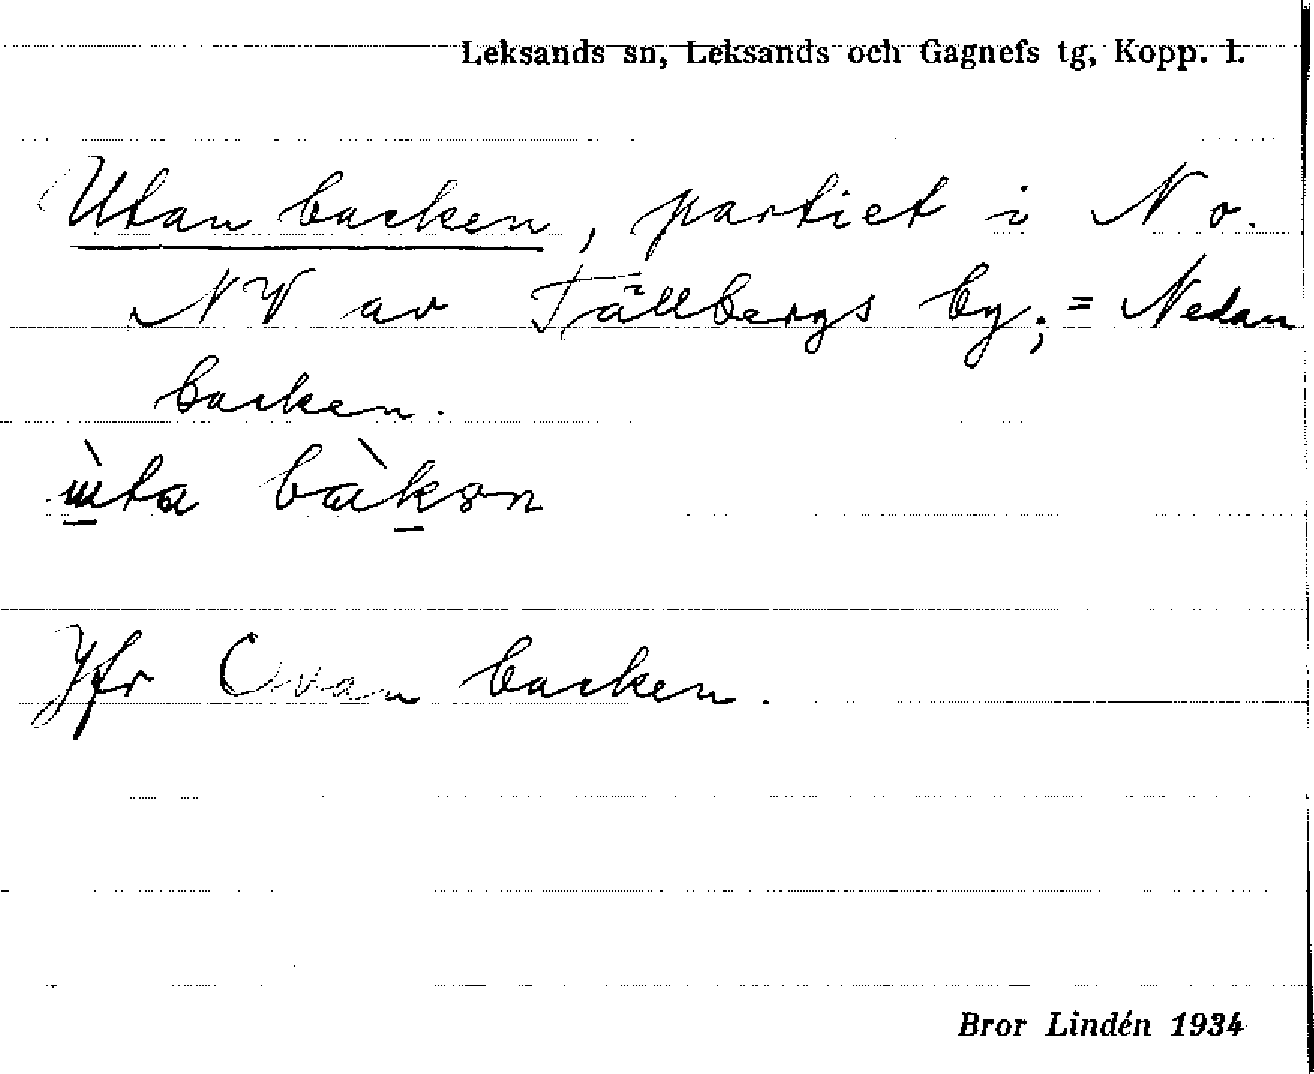 Leksands sn, Leksands och Gagnefs tg, Kopp. l.
Utan backen, partiet i N o.
NV av Tällbergs by; = Nedan
backen.
ùta bàkən
Jfr Ovan backen.
Bror Lindén 1934